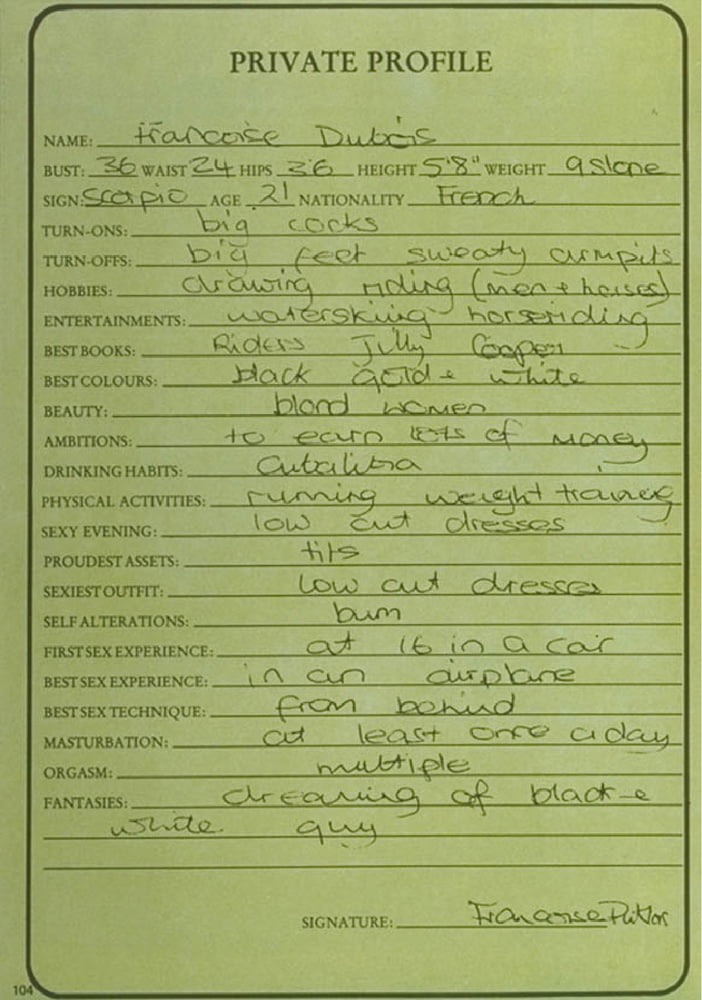 PRIVATE PROFILE
NAME: Francoise Dubois
BUST: 36 WAIST 24 HIPS 36 HEIGHT 5'8" WEIGHT 9 Slone
SIGN: Scorpio AGE 21 NATIONALITY French
TURN-ONS: big cocks
TURN-OFFS: big feet sweaty armpits
HOBBIES: drawing riding (men + horses)
ENTERTAINMENTS: waterskiing horseriding
BEST BOOKS: Riders Jilly Cooper
BEST COLOURS: black gold + white
BEAUTY: blond women
AMBITIONS: to earn lots of money
DRINKING HABITS: Cubalibra
PHYSICAL ACTIVITIES: running weight training
SEXY EVENING: low cut dresses
PROUDEST ASSETS: tits
SEXIEST OUTFIT: low cut dresses
SELF ALTERATIONS: bum
FIRST SEX EXPERIENCE: at 16 in a car
BEST SEX EXPERIENCE: in an airplane
BEST SEX TECHNIQUE: from behind
MASTURBATION: at least once a day
ORGASM: multiple
FANTASIES: dreaming of black +
white guy
SIGNATURE: Francoise
104